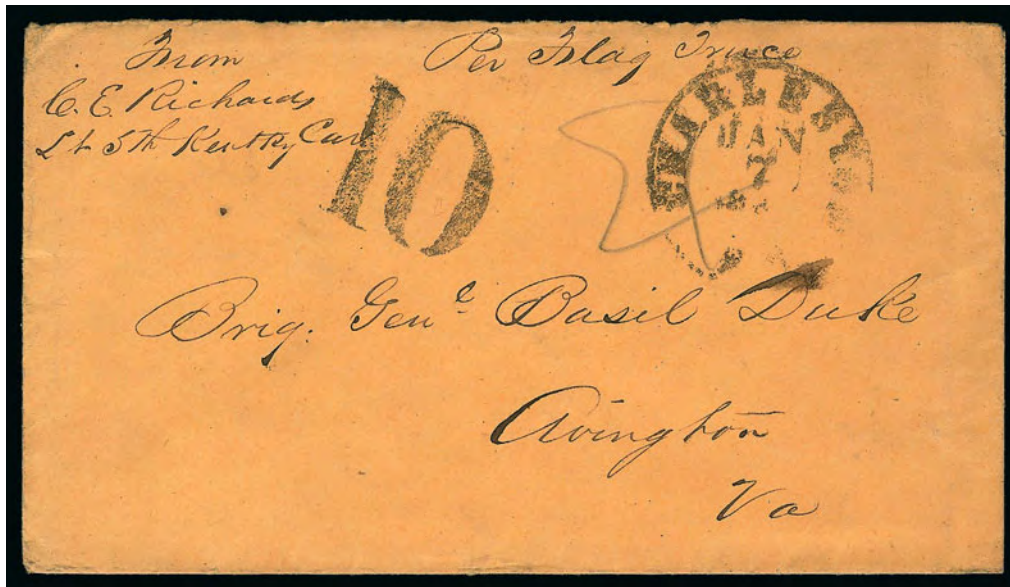 From
C. E. Richards
Lt 5th Kentky Cav
Per Flag Truce
10
JAN
7
Brig. Genl Basil Duke
Avington
Va